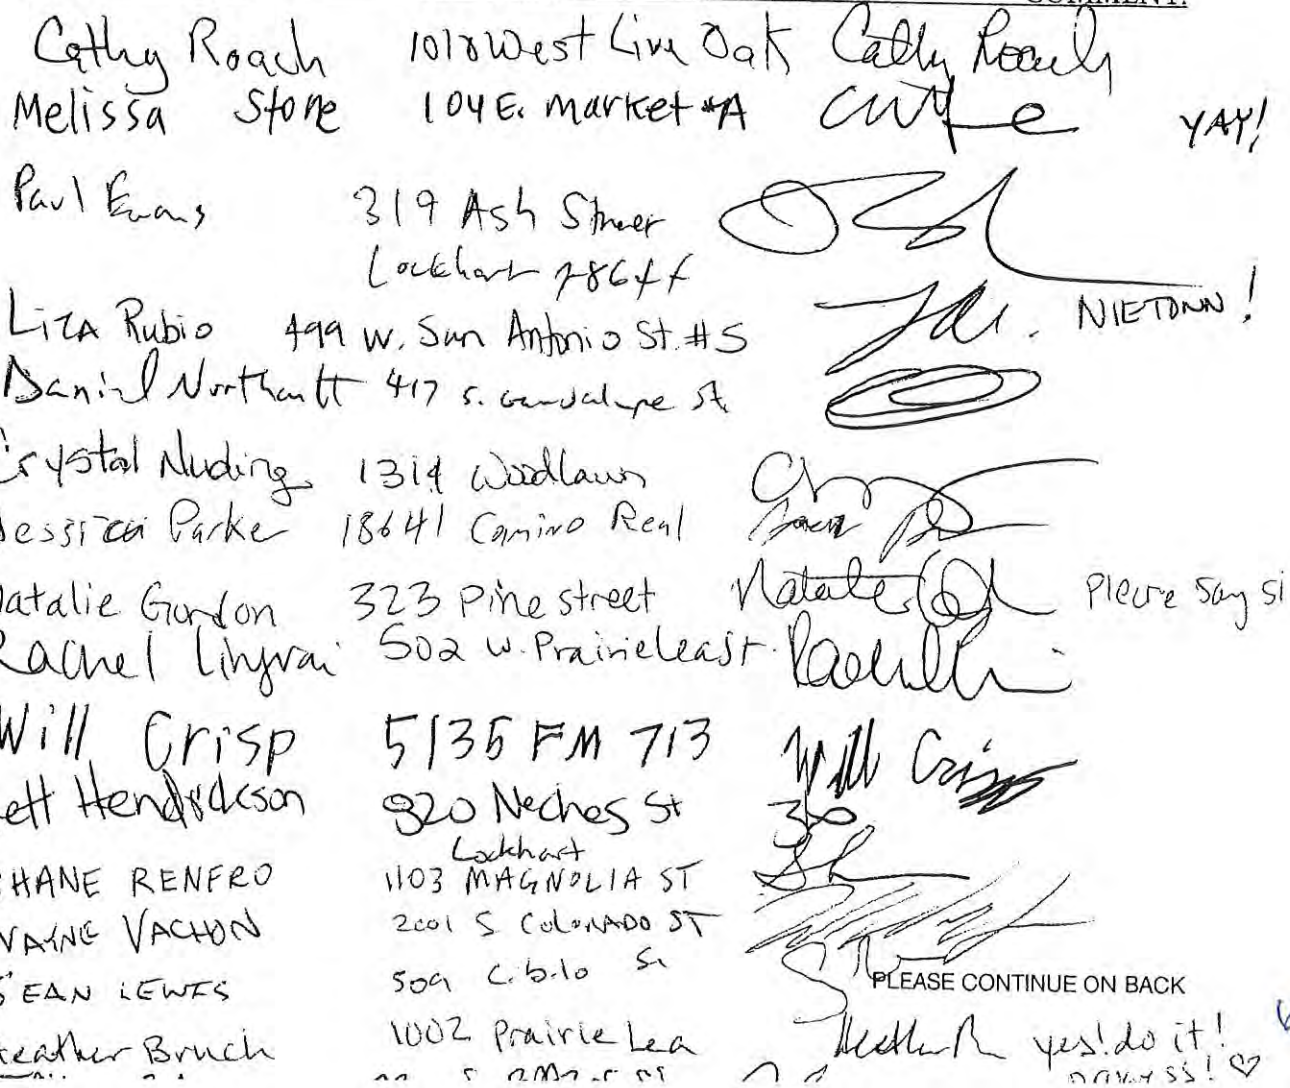 COMMENT:
Cathy Roach 1018 West Live Oak Cathy Roach
Melissa Stone 104 E. market #A YAY!
Paul Evans 319 Ash Street
Lockhart 78644
Liza Rubio 499 W. San Antonio St. #5 NIETONN!
Daniel Northcutt 417 s. Guadalupe st.
Crystal Nuding 1314 Woodlawn
Jessica Parker 18641 Camino Real
Natalie Gordon 323 Pine street Natalie Please say si
Rachel Lingvai 502 W. Prairielea st.
Will Crisp 5135 FM 713 Will Crisp
ett Hendrickson 920 Neches St
Lockhart
HANE RENFRO 1103 MAGNOLIA ST
WAYNE VACHON 2001 S COLORADO ST
SEAN LEWIS 509 Cibilo St
PLEASE CONTINUE ON BACK
Heather Bruch 1002 Prairie Lea Heather B yes! do it!